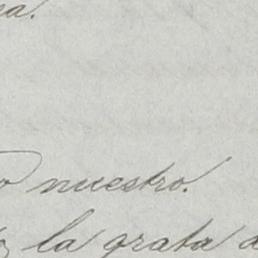 nuestro.
la grata